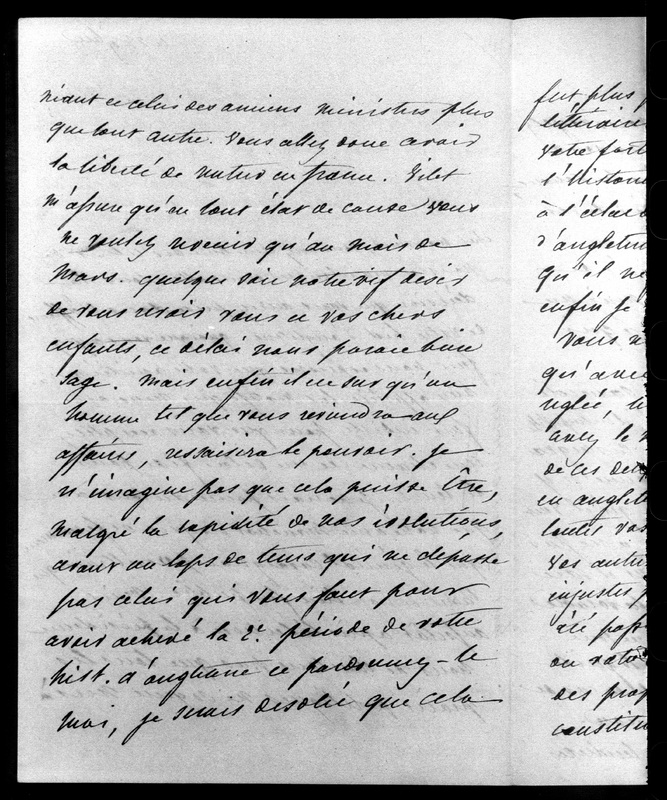 niant ce celui des anciens ministres plus
que tout autre. Vous allez donc avoir
la liberté de rentrer en france.
m'assure qu'en tout état de cause vous
ne voulez revenir qu'au mois de
Mars. quelque soit notre vif désir
de vous revoir vous et vos chers
enfants, ce délai nous parait bien
sage. Mais enfin il est sur qu'un
homme tel que vous reviendra aux
affaires, ressaisira le pouvoir. je
n'imagine pas que cela puisse être,
malgré la rapidité de nos évolutions,
avant un laps de tems qui ne dépasse
pas celui qui vous faut pour
avoir achevé la 2e. période de votre
hist. d'angleterre et pardonnez-le
moi, je serais désolé que cela
fut plus
littéraire
votre fort
l'histoire
à l'éclat
d'angleter
qu'il ne
enfin je
Vous a
qu'avec
réglée,
avez le
de ces deux
en anglet
toutes vos
vos autre
injustes
été pas
ou votre
des prop
constitu